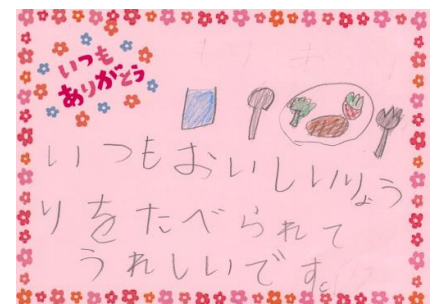 いつも
ありがとう
いつもおいしいりょう
りをたべられて
うれしいです。